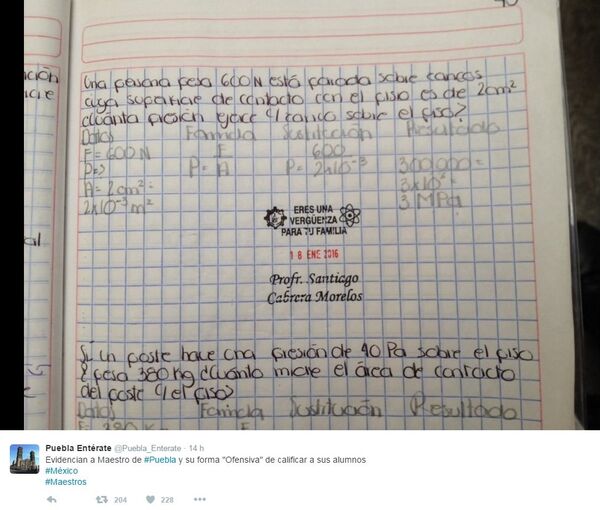 Una persona pesa 600 N está parada sobre tancos
cuya superficie de contacto con el piso es de 2cm²
cuánta presión ejerce c/tanco sobre el piso?
Datos Formula Sustitución Resultado
F=600N F 600 300000=
P=> P= A P= 2x10⁻³ 3x10⁶=
A=2cm²= 3 MPa
2x10⁻³m²
ERES UNA
VERGÜENZA
PARA TU FAMILIA
18 ENE 2016
Profr. Santiago
Cabrera Morelos
Si un poste hace una presión de 40 Pa sobre el piso
pesa 380 kg cuánto mide el área de contacto
del poste c/ el piso
Datos Formula Sustitución Resultado
Puebla Entérate @Puebla_Enterate · 14 h
Evidencian a Maestro de #Puebla y su forma "Ofensiva" de calificar a sus alumnos
#México
#Maestros
204 228